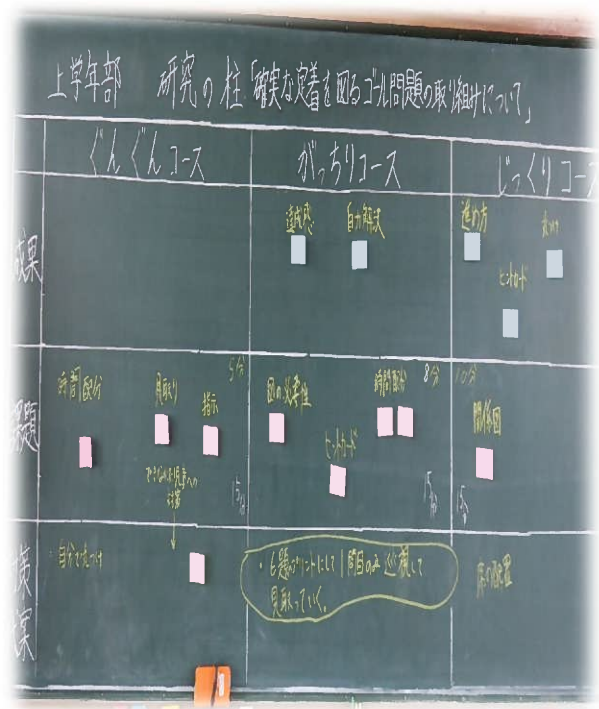 上学年部 研究の柱「確実な定着を図るゴール問題の取り組みについて」
ぐんぐんコース がっちりコース じっくりコース
成果
達成感 自力解決 進め方
ヒントカード
課題
時間配分 見取り 指示 5分
できなかった児童への
対策
15分
図の必要性 時間配分 8分
ヒントカード
15分
10分
関係図
15分
自分で丸つけ
・6題プリントにして1問目のみ巡視して
見取っていく。
席の配置